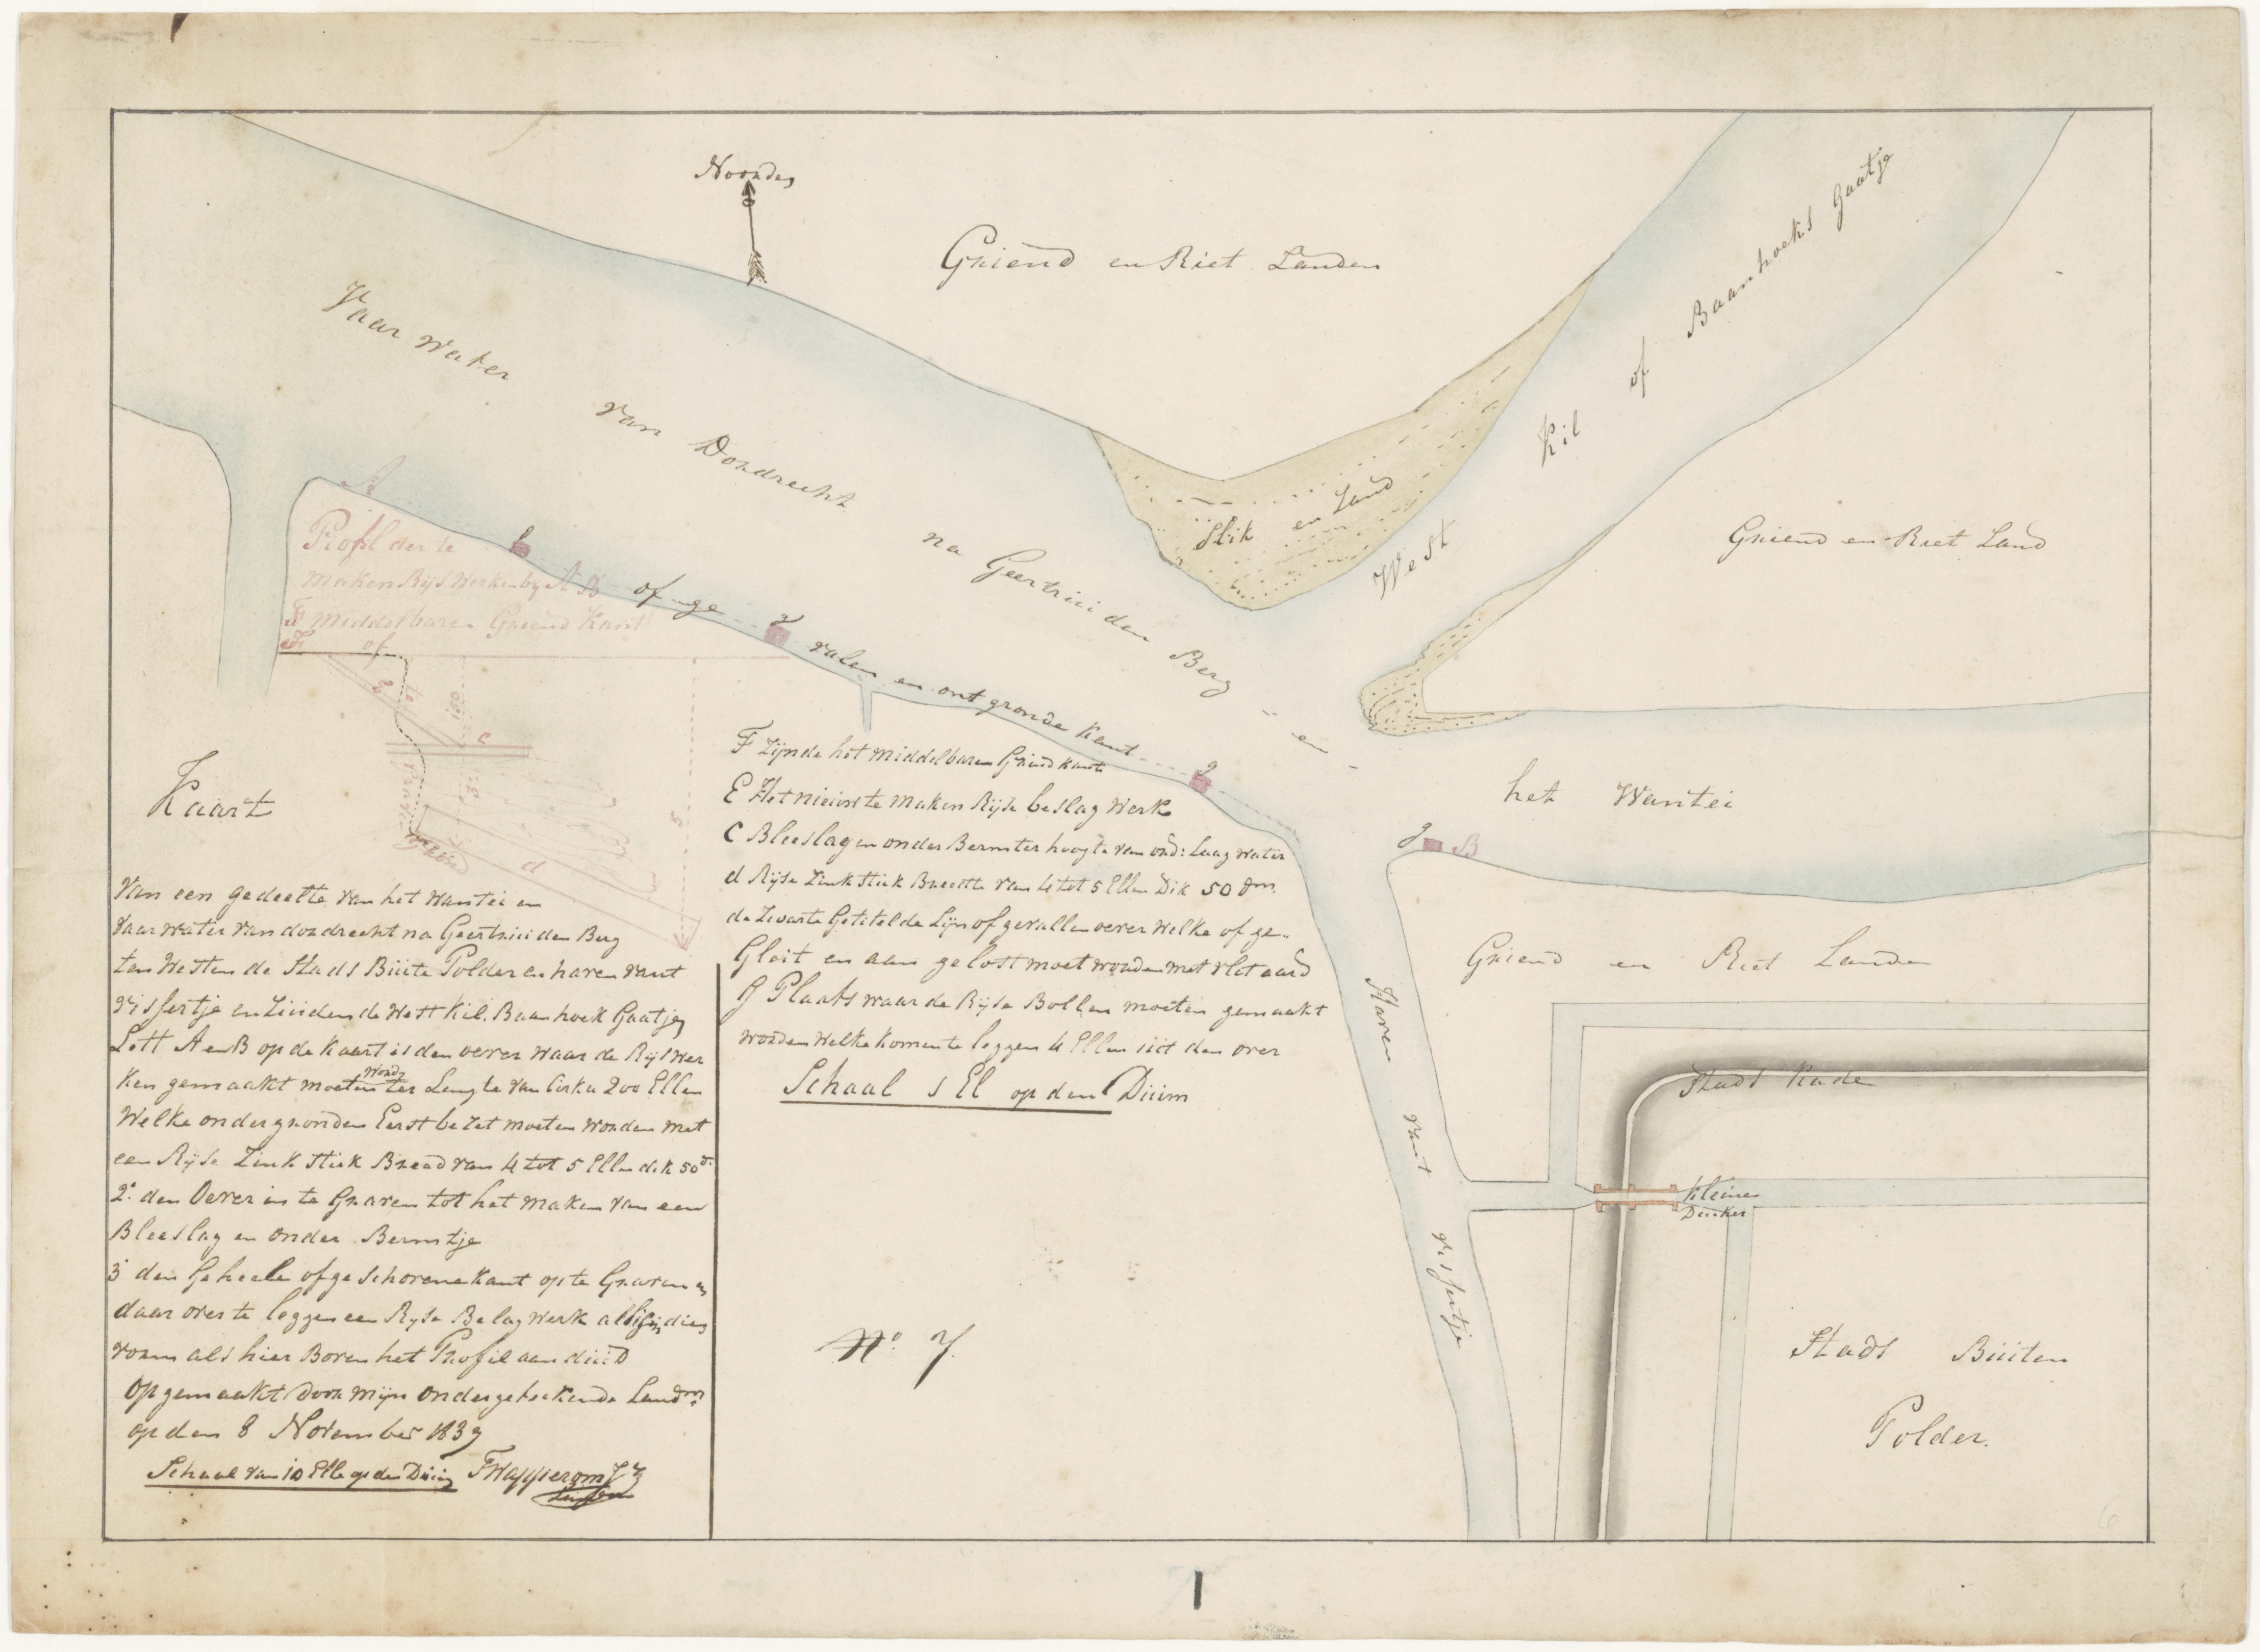 Noorden
Griend en Riet Landen
Vaar Water van Dordrecht na Geertruiden Berg en
West Kil of Baanhoeks Gaatje
Slik en Zand
Griend en Riet Land
A
Profil der te
maken Rijs Werken by A B
F middelbaren Griend Kant
F of
of ge vallen en ont gronde Kant
g
g
g
g B
het Wantei
Griend en Riet Landen
Haven vant visfertje
Stads Kade
Kleine
Duiker
Stads Buiten
Polder.
Kaart
van een gedeelte van het Wantei en
vaarwater van dordrecht na Geertruiden Berg
ten Westen de Stads Buite Polder en haven vant
visfertje en Zuiden de West Kil. Baanhoek Gaatje
Lett A en B op de Kaart is den oever waar de Rijs Wer
Ken gemaakt moeten word ter Lengte van Cirka 200 Ellen
Welke onder gronden Eerst bezet moeten worden met
een Rijse Zink Stuk Breed van 4 tot 5 Ellen dik 50 d.
2. den Oever in te Graven tot het maken van een
Bleeslag en onder Bermtje
3 den Geheele ofgeschorene kant op te Graven en
daar over te leggen een Ryse Belag Werk
voorm als hier Boven het Profil aan duid
Opgemaakt door mijn ondergeteekende Landm.
op den 8 November 1839
Schaal van 10 Elle op den Duim
F Zijnde het middelbaren Griend kant
E Het nieuw te maken Rijse beslag Werk
C Bleeslag en onder Berm ter hoogte van ord: Laag water
d Rijse Zink Stuk Breette van 4 tot 5 Ellen Dik 50 dm.
de Zwarte Getitelde Lijn of gevallen oever Welke of ge-
Gleit en aan gelost moet worden met vlet aard
g Plaats waar de Rijse Bollen moeten gemaakt
worden Welke komen te leggen 4 Ellen uit den over
Schaal 1 El op den Duim
No 7.
1
6